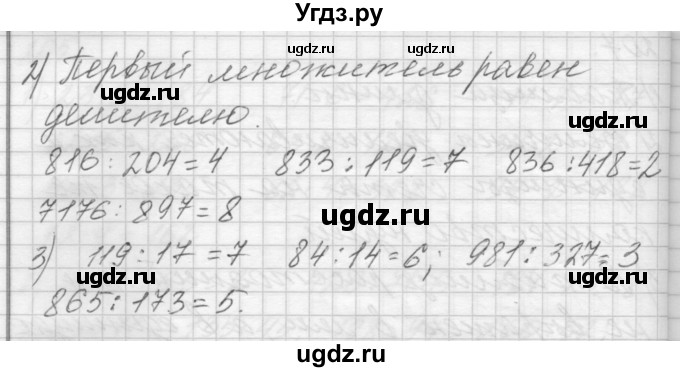 Угдз.ру
ugdz.ru ugdz.ru
2) Первый множитель равен
ugdz.ru
делителю.
ugdz.ru
816 : 204 = 4 833 : 119 = 7 836 : 418 = 2
7176 : 897 = 8
ugdz.ru
3) 119 : 17 = 7 84 : 14 = 6; 981 : 327 = 3
ugdz.ru ugdz.ru
865 : 173 = 5.
ugdz.ru
ugdz.ru